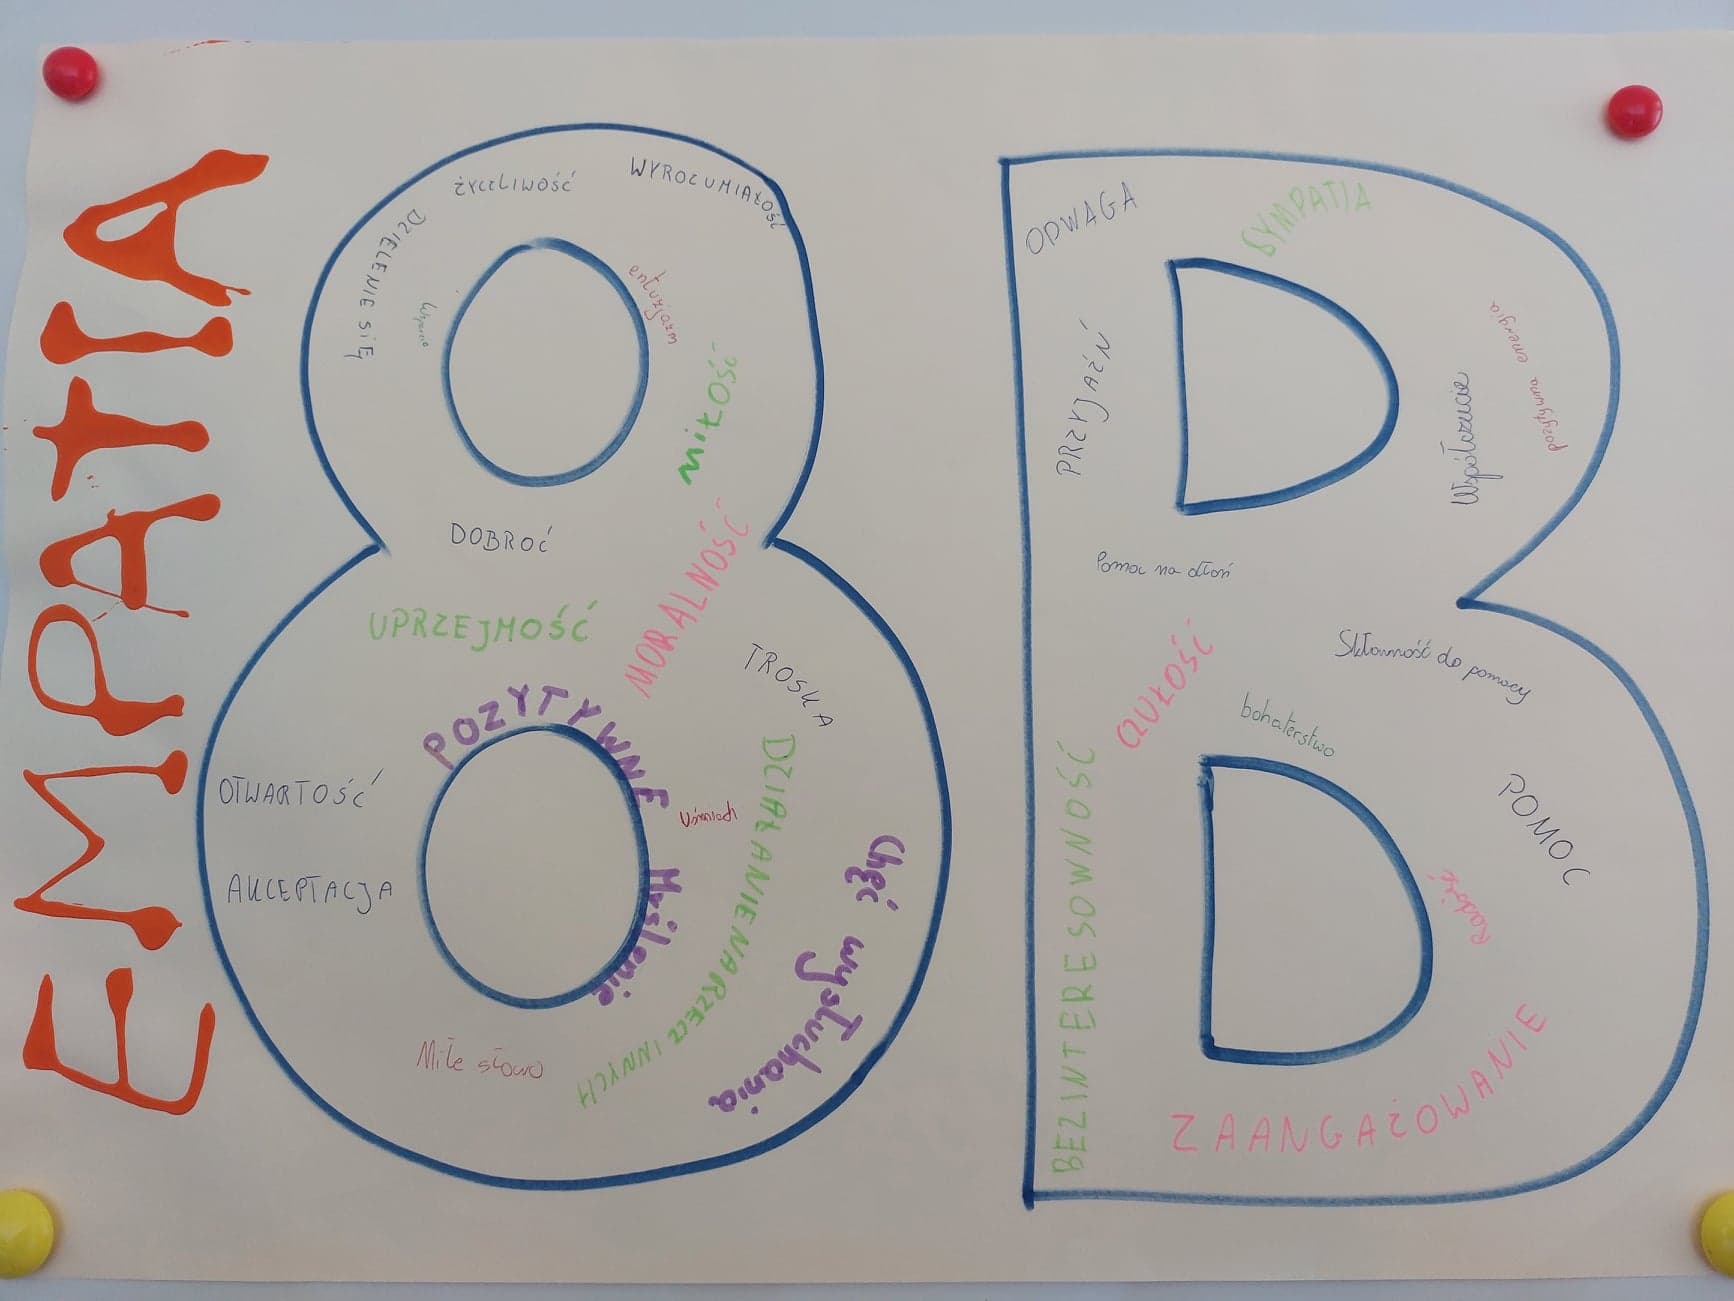 EMPATIA
ŻYCZLIWOŚĆ
WYROZUMIAŁOŚĆ
DZIELENIE SIĘ
Wsparcie
entuzjazm
MIŁOŚĆ
DOBROĆ
UPRZEJMOŚĆ
MORALNOŚĆ
TROSKA
POZYTYWNE
Myślenie
OTWARTOŚĆ
AKCEPTACJA
Uśmiech
DZIAŁANIE NA RZECZ INNYCH
Chęć wysłuchania
Miłe słowo
ODWAGA
SYMPATIA
PRZYJAŹŃ
Współczucie
pozytywna energia
Pomoc na dłoń
Skłonność do pomocy
CZUŁOŚĆ
bohaterstwo
POMOC
BEZINTERESOWNOŚĆ
Radość
ZAANGAŻOWANIE
8B